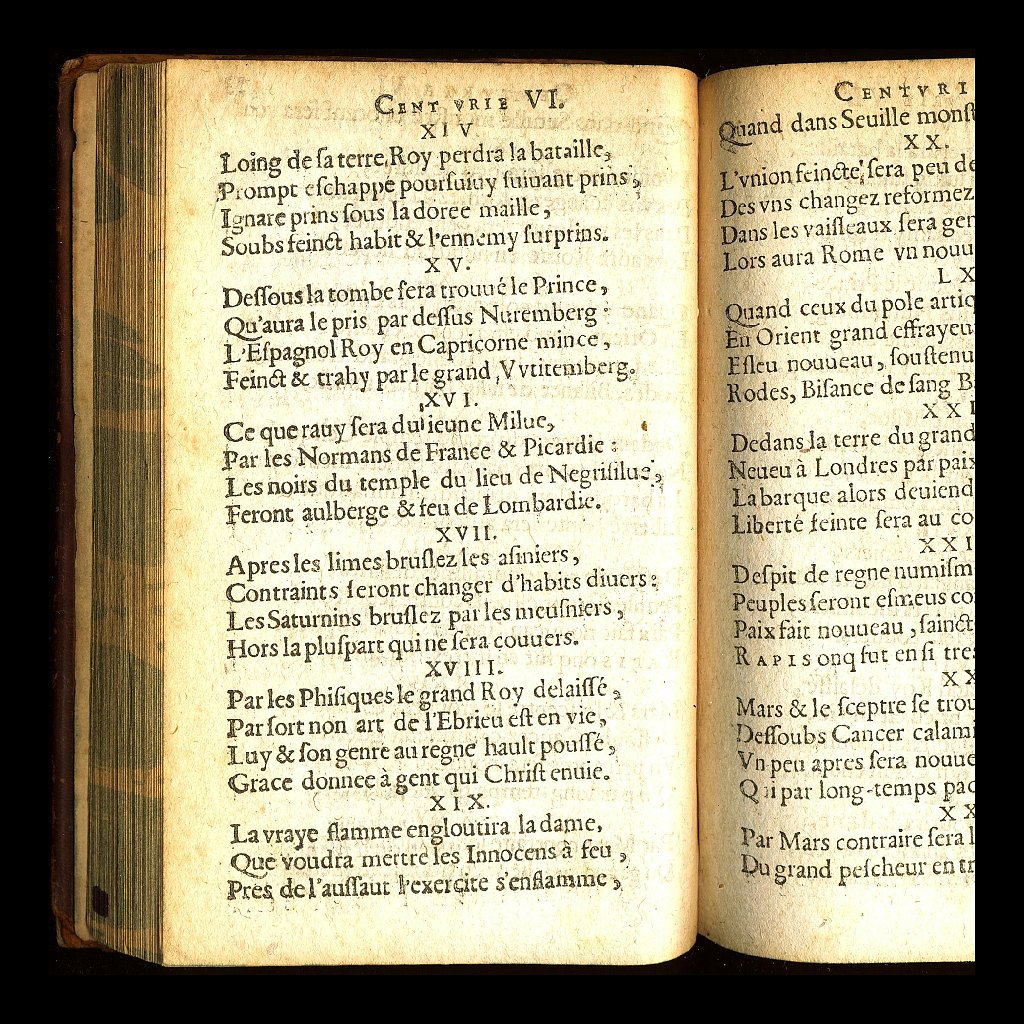 CENTVRIE VI.
XIV.
Loing de ſa terre Roy perdra la bataille,
Prompt eſchappé pourſuiuy ſuiuant prins,
Ignare prins ſous la doree maille,
Soubs feinct habit & l'ennemy ſurprins.
XV.
Deſſous la tombe ſera trouué le Prince,
Qu'aura le pris par deſſus Nuremberg :
L'Eſpagnol Roy en Capricorne mince,
Feinct & trahy par le grand Vvtitemberg.
XVI.
Ce que rauy ſera du ieune Milue,
Par les Normans de France & Picardie :
Les noirs du temple du lieu de Negriſilue,
Feront aulberge & feu de Lombardie.
XVII.
Apres les limes bruſlez les aſiniers,
Contraints ſeront changer d'habits diuers:
Les Saturnins bruſlez par les meuſniers,
Hors la pluſpart qui ne ſera couuers.
XVIII.
Par les Phiſiques le grand Roy delaiſſé,
Par ſort non art de l'Ebrieu eſt en vie,
Luy & ſon genre au regne hault pouſſé,
Grace donnee à gent qui Chriſt enuie.
XIX.
La vraye flamme engloutira la dame,
Que voudra mettre les Innocens à feu,
Pres de l'auſſaut l'exercite s'enflamme,
CENTVRI
Quand dans Seuille monſt
XX.
L'vnion feincte ſera peu de
Des vns changez reformez
Dans les vaiſſeaux ſera gen
Lors aura Rome vn nouu
LX
Quand ceux du pole artiq
En Orient grand effrayeu
Eſleu nouueau, ſouſtenu
Rodes, Biſance de ſang B
XXI
Dedans la terre du grand
Neueu à Londres par paix
La barque alors deuiend
Liberté feinte ſera au co
XXI
Deſpit de regne numiſm
Peuples ſeront eſmeus co
Paix fait nouueau, ſainct
RAPIS onq fut en ſi tres
XX
Mars & le ſceptre ſe trou
Deſſoubs Cancer calami
Vn peu apres ſera nouue
Qui par long-temps pac
XX
Par Mars contraire ſera l
Du grand peſcheur en tr